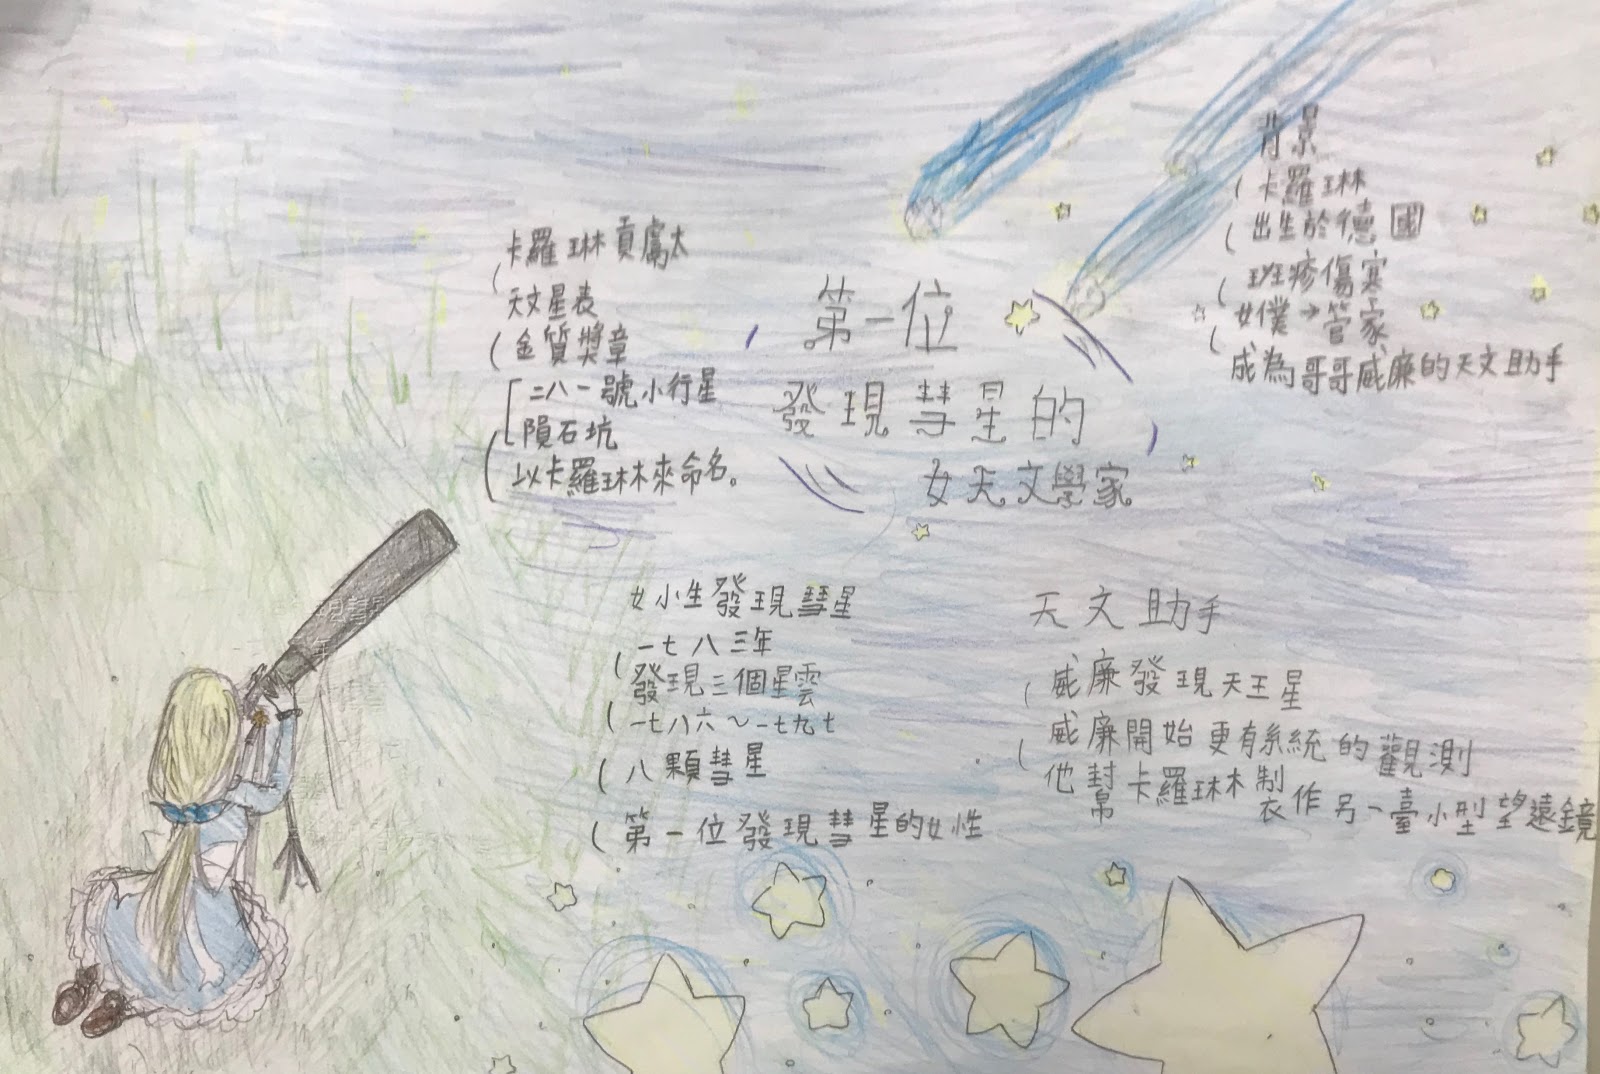 第一位
發現彗星的
女天文學家
背景
卡羅琳
出生於德國
斑疹傷寒
女僕→管家
成為哥哥威廉的天文助手
天文助手
威廉發現天王星
威廉開始更有系統的觀測
他幫卡羅琳制衣作另一臺小型望遠鏡
女小生發現彗星
一七八三年
發現三個星雲
一七八六～一七九七
八顆彗星
第一位發現彗星的女性
卡羅琳貢獻大
天文星表
金質獎章
二八一號小行星
隕石坑
以卡羅琳來命名。